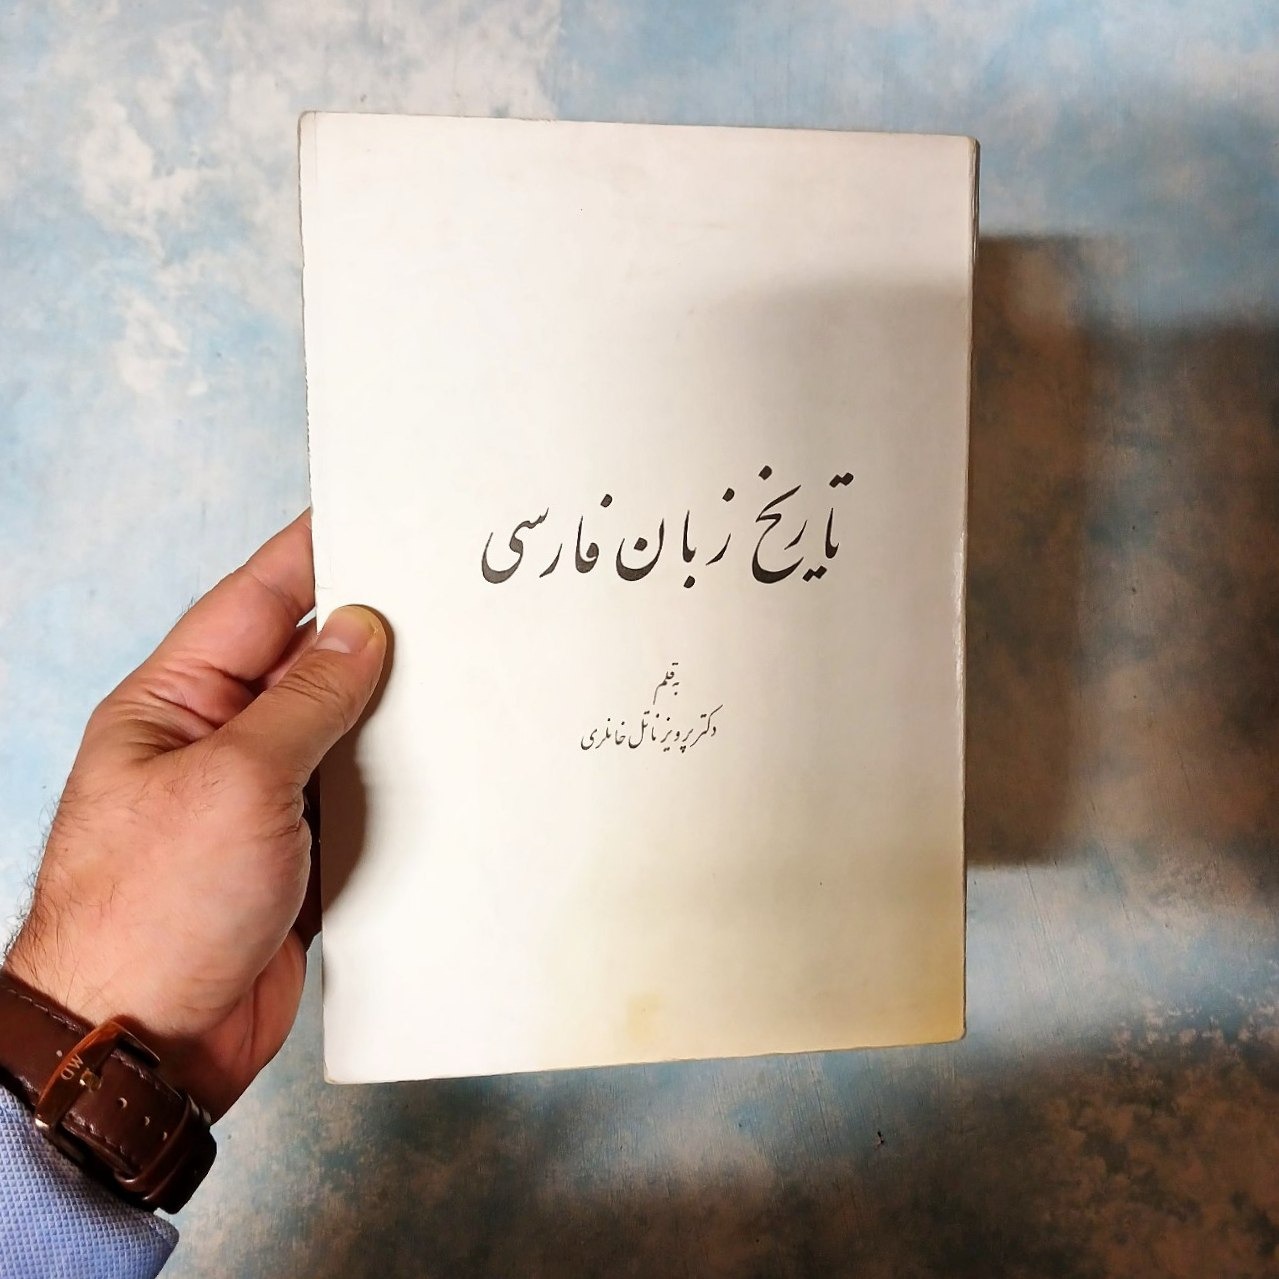 تاریخ زبان فارسی
به قلم
دکتر پرویز ناتل خانلری
DW